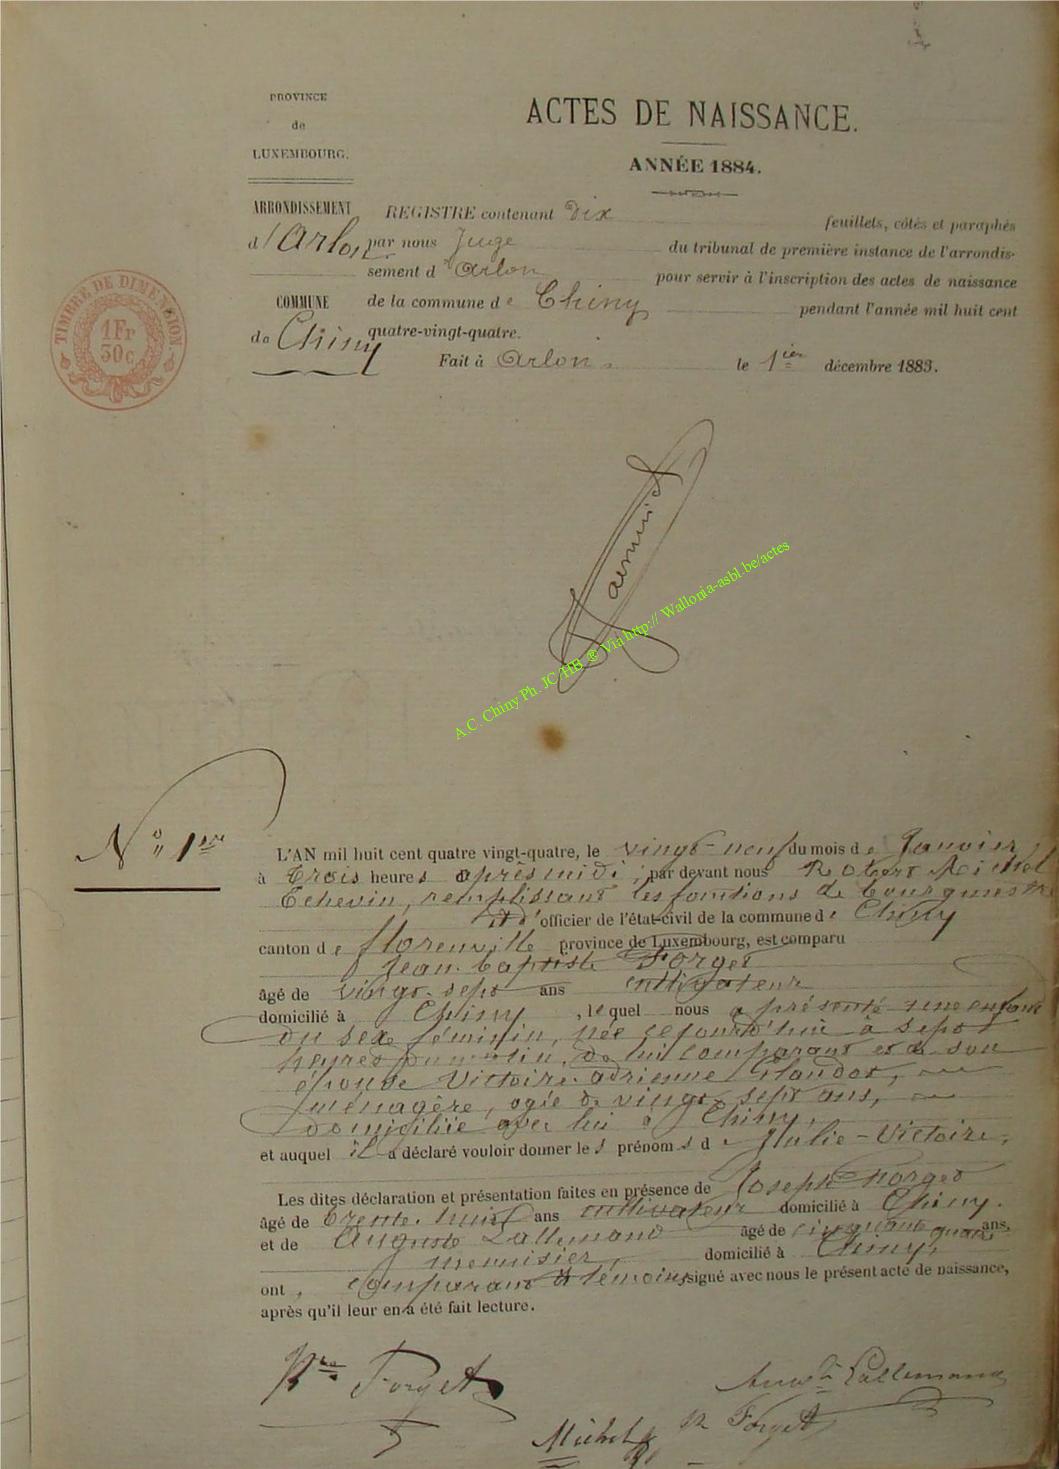 PROVINCE
de
LUXEMBOURG.
ACTES DE NAISSANCE.
ANNÉE 1884.
ARRONDISSEMENT
d'Arlon
COMMUNE
de Chiny
REGISTRE contenant Dix feuillets, côtés et paraphés
par nous Juge du tribunal de première instance de l'arrondis-
sement d'Arlon pour servir à l'inscription des actes de naissance
de la commune de Chiny pendant l'année mil huit cent
quatre-vingt-quatre.
Fait à Arlon. le 1ier décembre 1883.
TIMBRE DE DIMENSION.
1Fr
30c
A.C. Chiny Ph. JC/HB ® Via http:// Wallonia-asbl.be/actes
No 1er
L'AN mil huit cent quatre vingt-quatre, le vingt-neuf du mois de Janvier
à trois heures après midi, par devant nous Robert Michel
Echevin, remplissant les fonctions de bourgmestre
et d'officier de l'état-civil de la commune de Chiny
canton de florenville province de Luxembourg, est comparu
Jean-baptiste Forget
âgé de vingt-sept ans cultivateur
domicilié à Chiny, lequel nous a présenté une enfant
du sexe féminin, née cejourd'hui à sept
heures du matin, de lui comparant et de son
épouse Victoire-adrienne Claudot,
ménagère, agée de vingt-sept ans,
domiciliée avec lui à Chiny,
et auquel il a déclaré vouloir donner les prénoms de Julie-Victoire,
Les dites déclaration et présentation faites en présence de Joseph Forget
âgé de trente-huit ans cultivateur domicilié à Chiny.
et de Auguste Lallemand âgé de cinquante quatre ans,
menuisier, domicilié à Chiny,
ont, comparant et témoins signé avec nous le présent acte de naissance,
après qu'il leur en a été fait lecture.
Forget
Lallemand
Michel
Forget